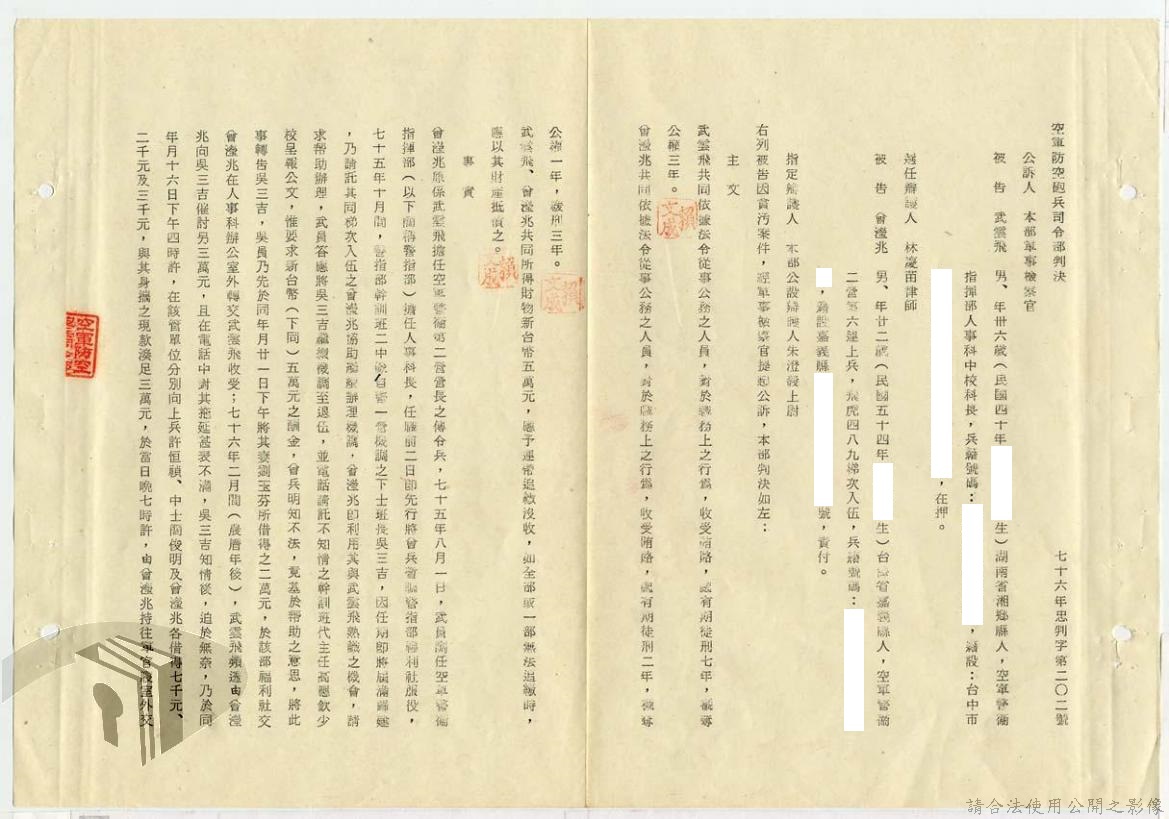 空軍防空砲兵司令部判決
七十六年忠判字第二〇二號
公訴人 本部軍事檢察官
被告 武雲飛 男、年卅六歲(民國四十年 生)湖南省湘鄉縣人,空軍警衛
指揮部人事科中校科長,兵籍號碼: ,寄設:台中市
,在押。
選任辯護人 林 律師
被告 曾瀅兆 男、年廿二歲(民國五十四年 生)台灣省嘉義縣人,空軍警衛
二營第六連上兵,飛虎四八九梯次入伍,兵籍號碼:
,寄設嘉義縣 號,責付。
指定辯護人 本部公設辯護人朱澄 上尉
右列被告因貪污案件,經軍事檢察官提起公訴,本部判決如左:
主文
武雲飛共同依據法令從事公務之人員,對於職務上之行為,收受賄賂,處有期徒刑七年,褫奪
公權三年。
曾瀅兆共同依據法令從事公務之人員,對於職務上之行為,收受賄賂,處有期徒刑二年,褫奪
公權一年,緩刑三年。
武雲飛、曾瀅兆共同所得財物新台幣五萬元,應予連帶追繳沒收,如全部或一部無法追繳時,
應以其財產抵償之。
事實
曾瀅兆原係武雲飛擔任空軍警衛第二營營長之傳令兵,七十五年八月一日,武員調任空軍警衛
指揮部(以下簡稱警指部)擔任人事科長,任職前二日即先行將曾兵 警指部福利社服役,
七十五年十月間,警指部幹訓班二中隊自警一營機調之下士班長吳三吉,因任期即將屆滿歸建
,乃請託其同梯次入伍之曾瀅兆協助 辦理機調,曾瀅兆即利用其與武雲飛熟識之機會,請
求幫助辦理,武員答應將吳三吉繼續機調至退伍,並電話請託不知情之幹訓班代主任高憲欽少
校呈報公文,惟要求新台幣(下同)五萬元之酬金,曾兵明知不法,竟基於幫助之意思,將此
事轉告吳三吉,吳員乃先於同年月廿一日下午將其妻劉玉芬所借得之二萬元,於該部福利社交
曾瀅兆在人事科辦公室外轉交武雲飛收受;七十六年二月間(農曆年後),武雲飛頻透由曾瀅
兆向吳三吉催討另三萬元,且在電話中對其拖延甚表不滿,吳三吉知情後,迫於無奈,乃於同
年月十六日下午四時許,在該管單位分別向上兵許恒禎、中士簡俊明及曾瀅兆各借得七千元、
二千元及三千元,與其身攜之現款湊足三萬元,於當日晚七時許,由曾瀅兆持往軍官 室外交
撰文處
撰文處
撰文處
空軍防空
請合法使用公開之影像